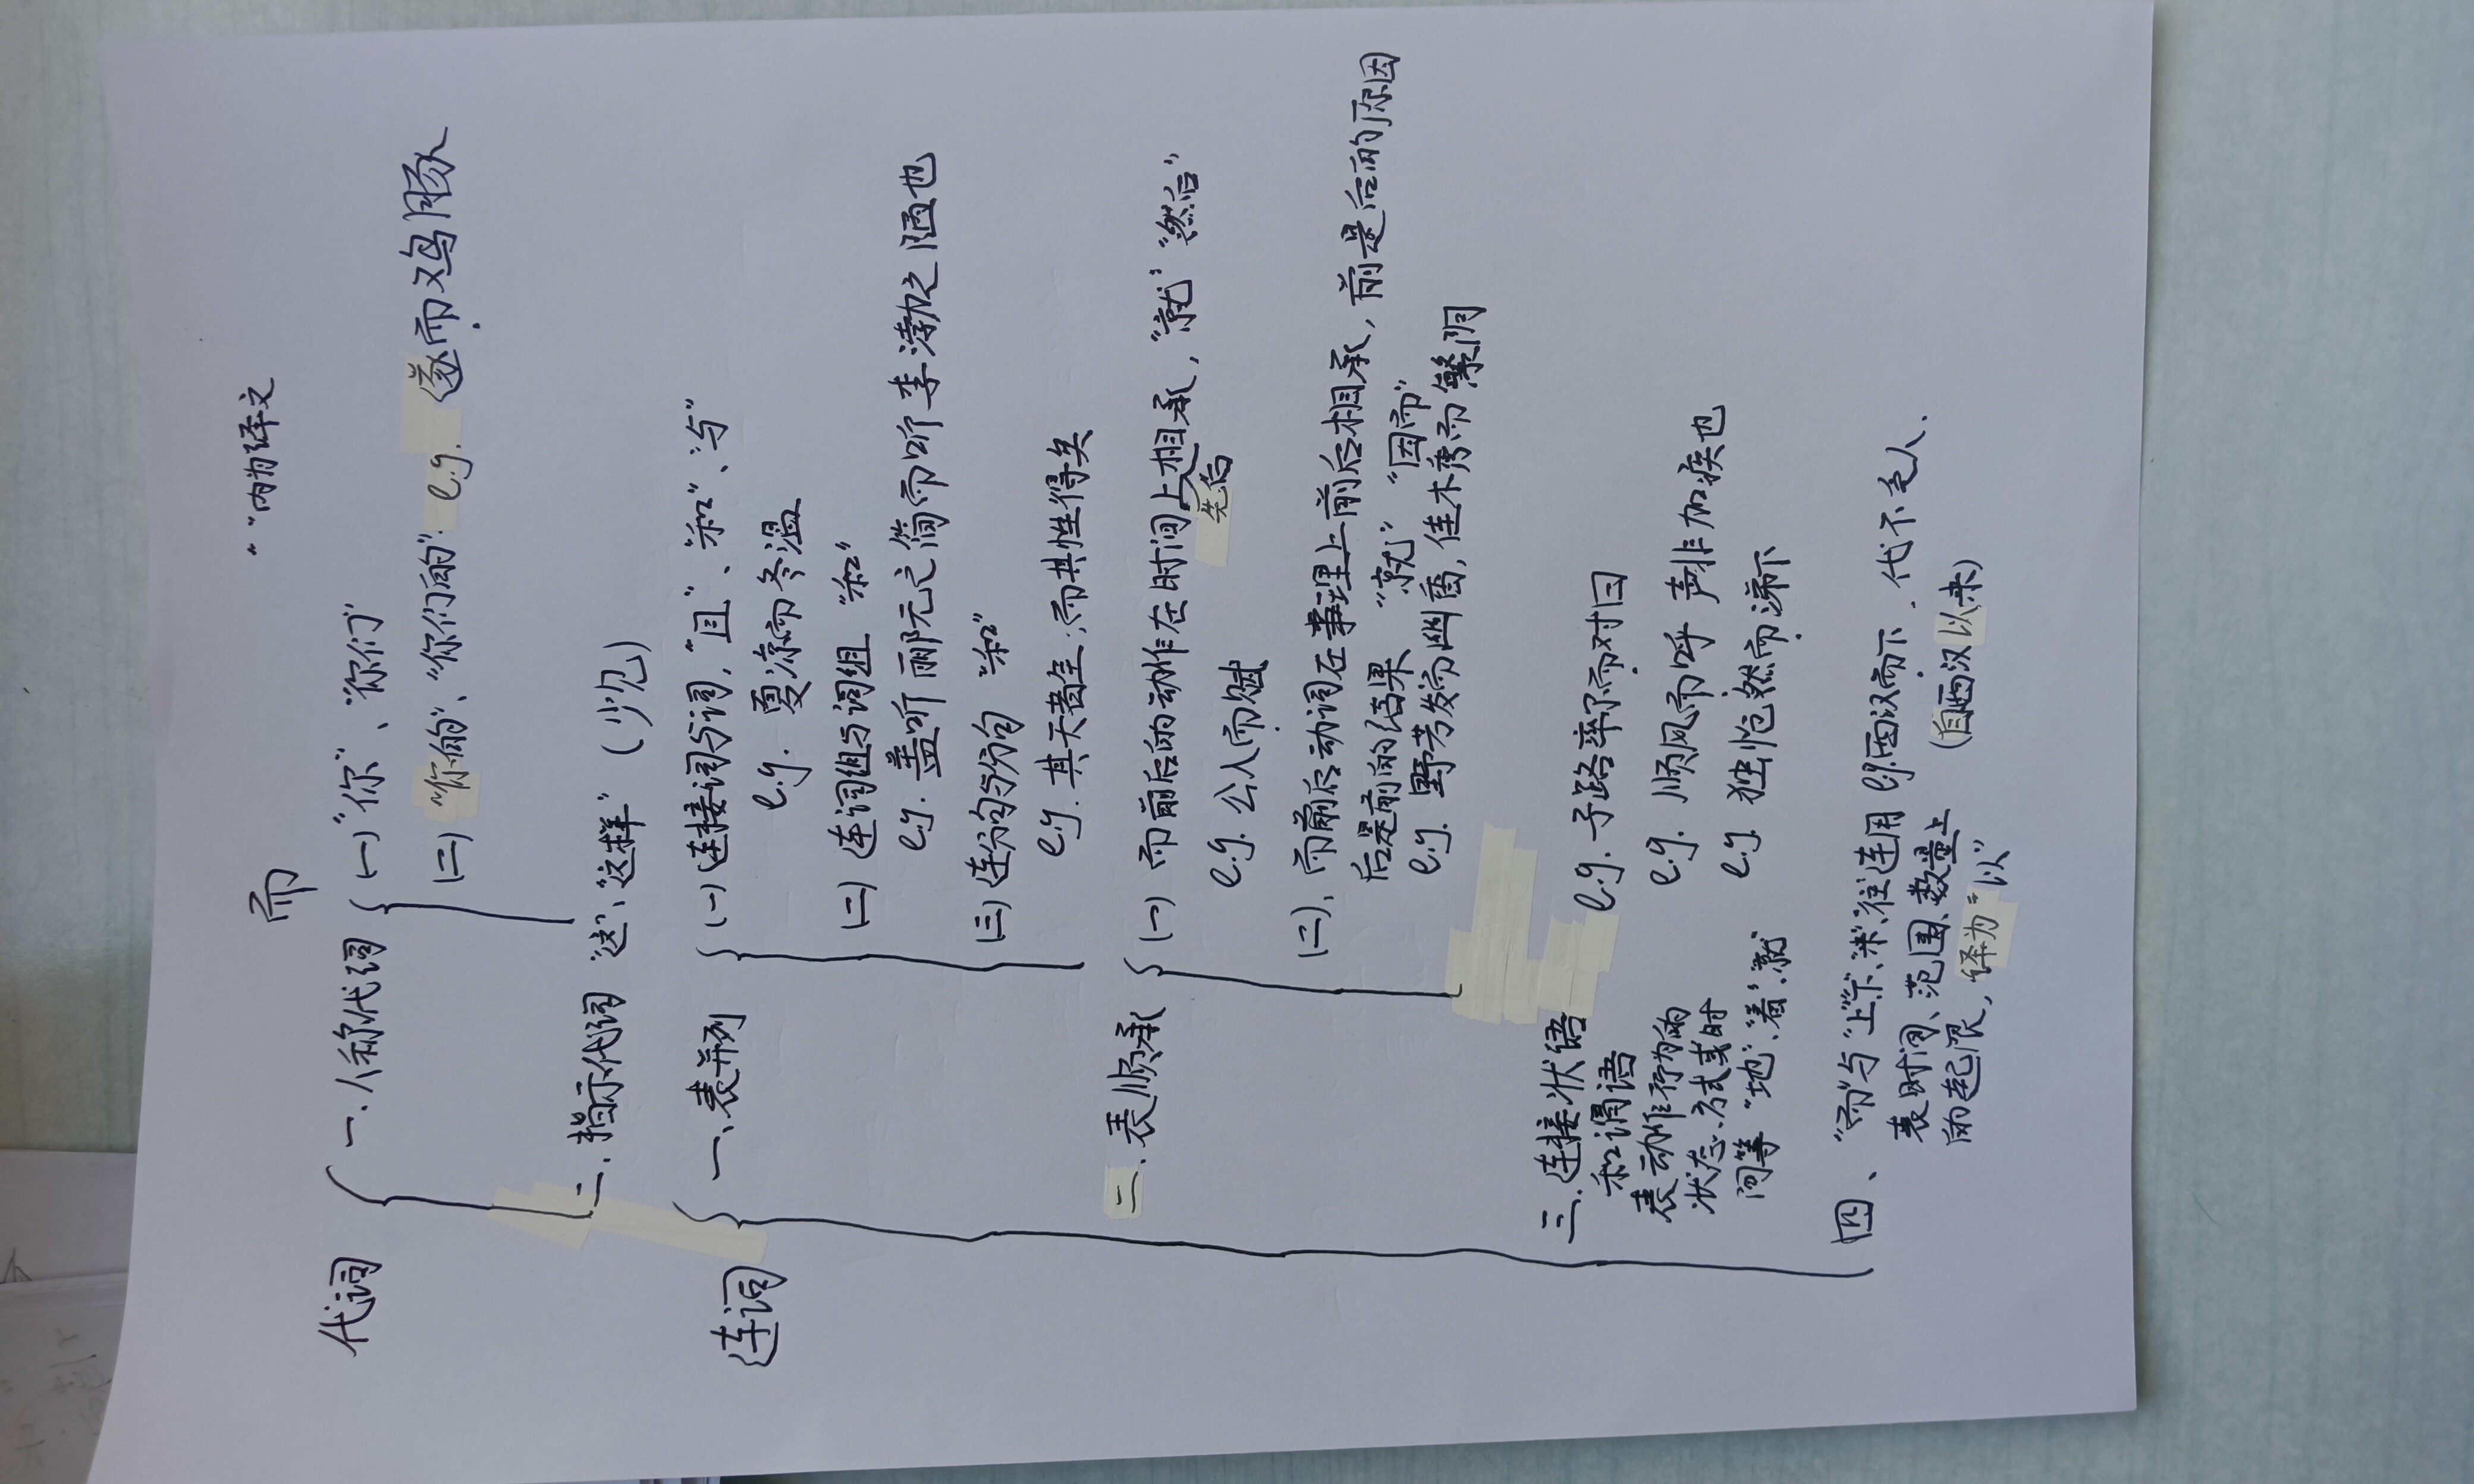 而
“”内为译文
代词
一. 人称代词
(一)“你”、“你们”
(二)“你的”、“你们的”: e.g. 遂而鸡豚
二. 指示代词 “这”、“这样” (少见)
连词
一、表并列
(一)连接词与词, “且”、“和”、“与”
e.g. 夏凉而冬温
(二) 连词组与词组 “和”
e.g. 盖叹郦元之简而叹李渤之陋也
(三) 连分句与分句 “和”
e.g. 其天者全, 而其性得矣
二. 表顺承
(一) 而前后的动作在时间上先后相承, “就”“然后”
e.g. 公入而赋
(二)、而前后动词在事理上前后相承, 前是后的原因
后是前的结果 “就” “因而”
e.g. 野芳发而幽香, 佳木秀而繁阴
三. 连接状语
和谓语
表动作行为的
状态.方式或时
间等 “地”.“着”.“就”
e.g. 子路率尔而对曰
e.g. 顺风而呼 声非加疾也
e.g. 独怆然而涕下
四、“而”与“上”“下”“来”“往”连用 e.g. 西汉而下. 代不乏人.
表时间、范围、数量上 (自西汉以来)
的起限, 译为“以”